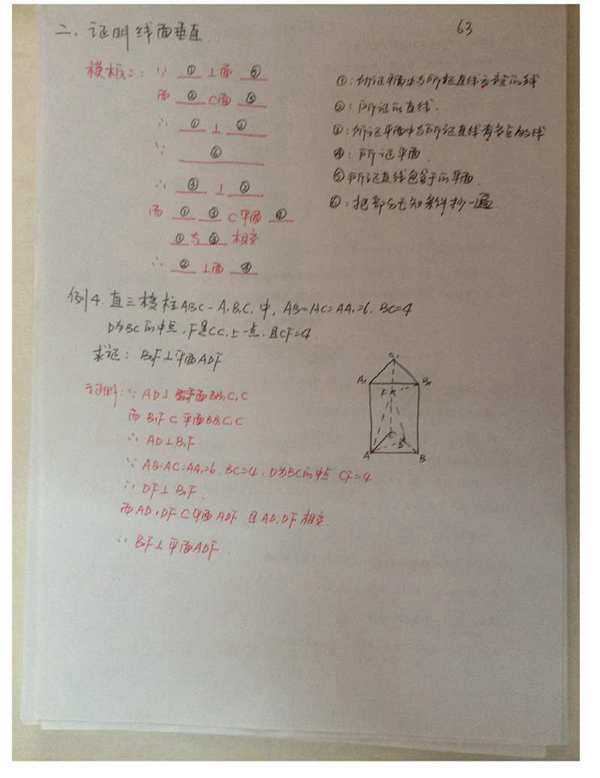 二、证明线面垂直
63
模板二: ∵ ① ⊥面 ⑤
而 ② ⊂面 ⑤
∴ ① ⊥ ②
∵ ⑥
∴ ③ ⊥ ②
而 ① ③ ⊂平面 ④
①与③ 相交
∴ ② ⊥面 ④
②: 所证的直线.
④: 所证平面.
⑤所证直线包含于的平面.
⑥: 把部分已知条件抄一遍
例4. 直三棱柱ABC-A₁B₁C₁中, AB=AC=AA₁=6. BC=4
D为BC的中点, F是CC₁上一点, 且CF=4
求证: B₁F⊥平面ADF
证明: ∵ AD⊥平面BB₁C₁C
而 B₁F⊂平面BB₁C₁C
∴ AD⊥B₁F
∵ AB=AC=AA₁=6. BC=4. D为BC的中点 CF=4
∴ DF⊥B₁F.
而AD,DF⊂平面ADF 且AD,DF相交
∴ B₁F⊥平面ADF.
C₁
A₁
B₁
F
C
D
A
B